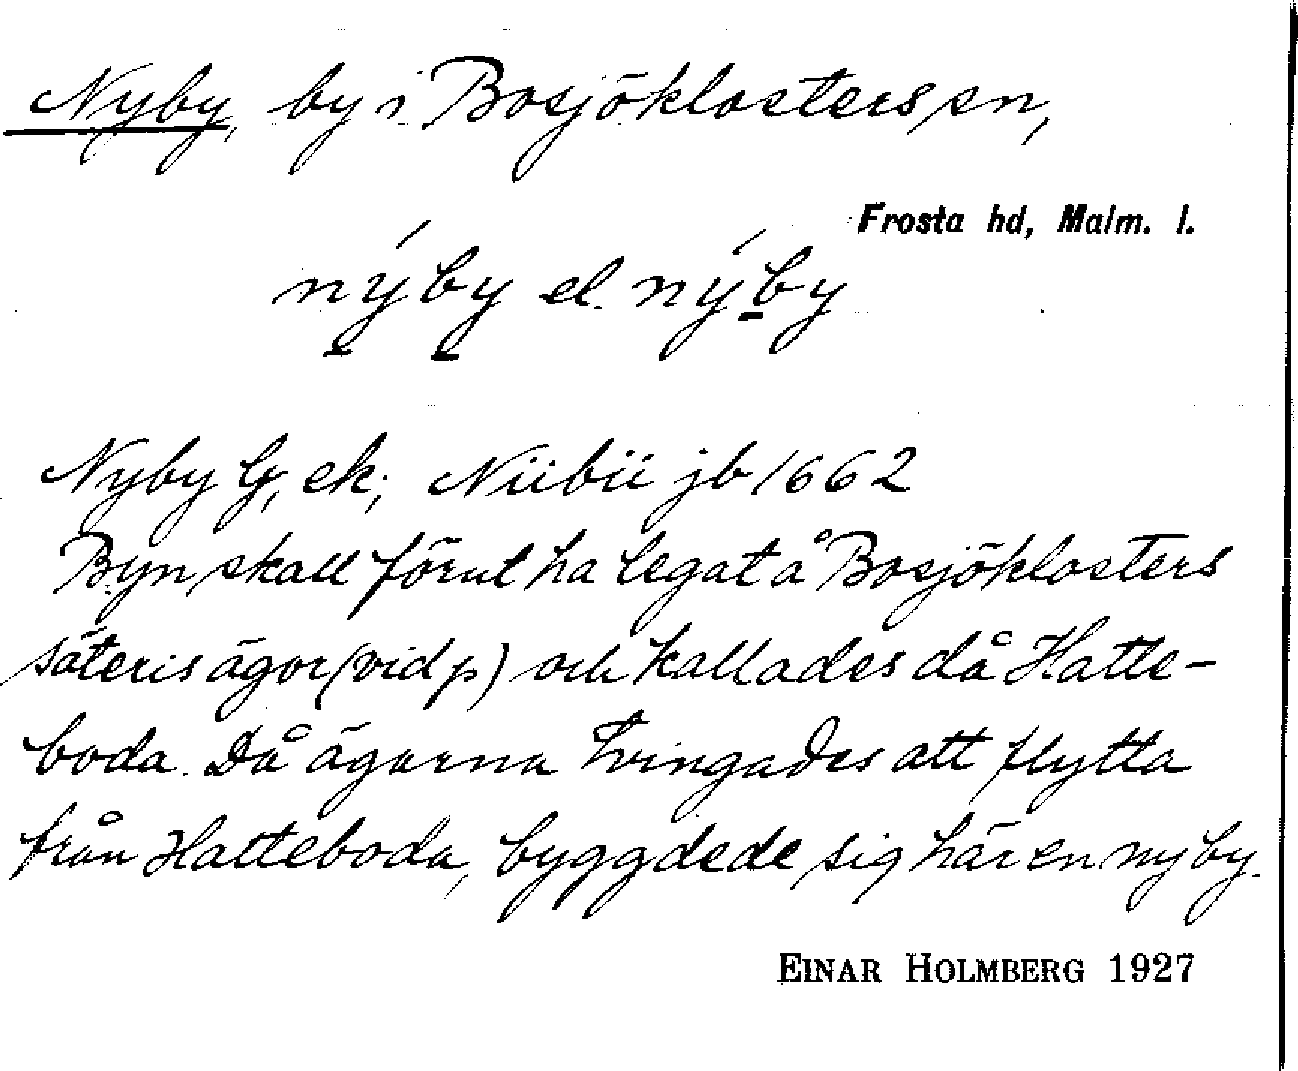 Nyby, by i Bosjöklosters sn,
Frosta hd, Malm. l.
nýby el. nýby
Nyby G, ek; Nübü jb 1662
Byn skall förut ha legat å Bosjöklosters
säteris ägor (vid p) och kallades då Hatte-
boda. Då ägarna tvingades att flytta
från Hatteboda, byggde de sig här en ny by.
EINAR HOLMBERG 1927